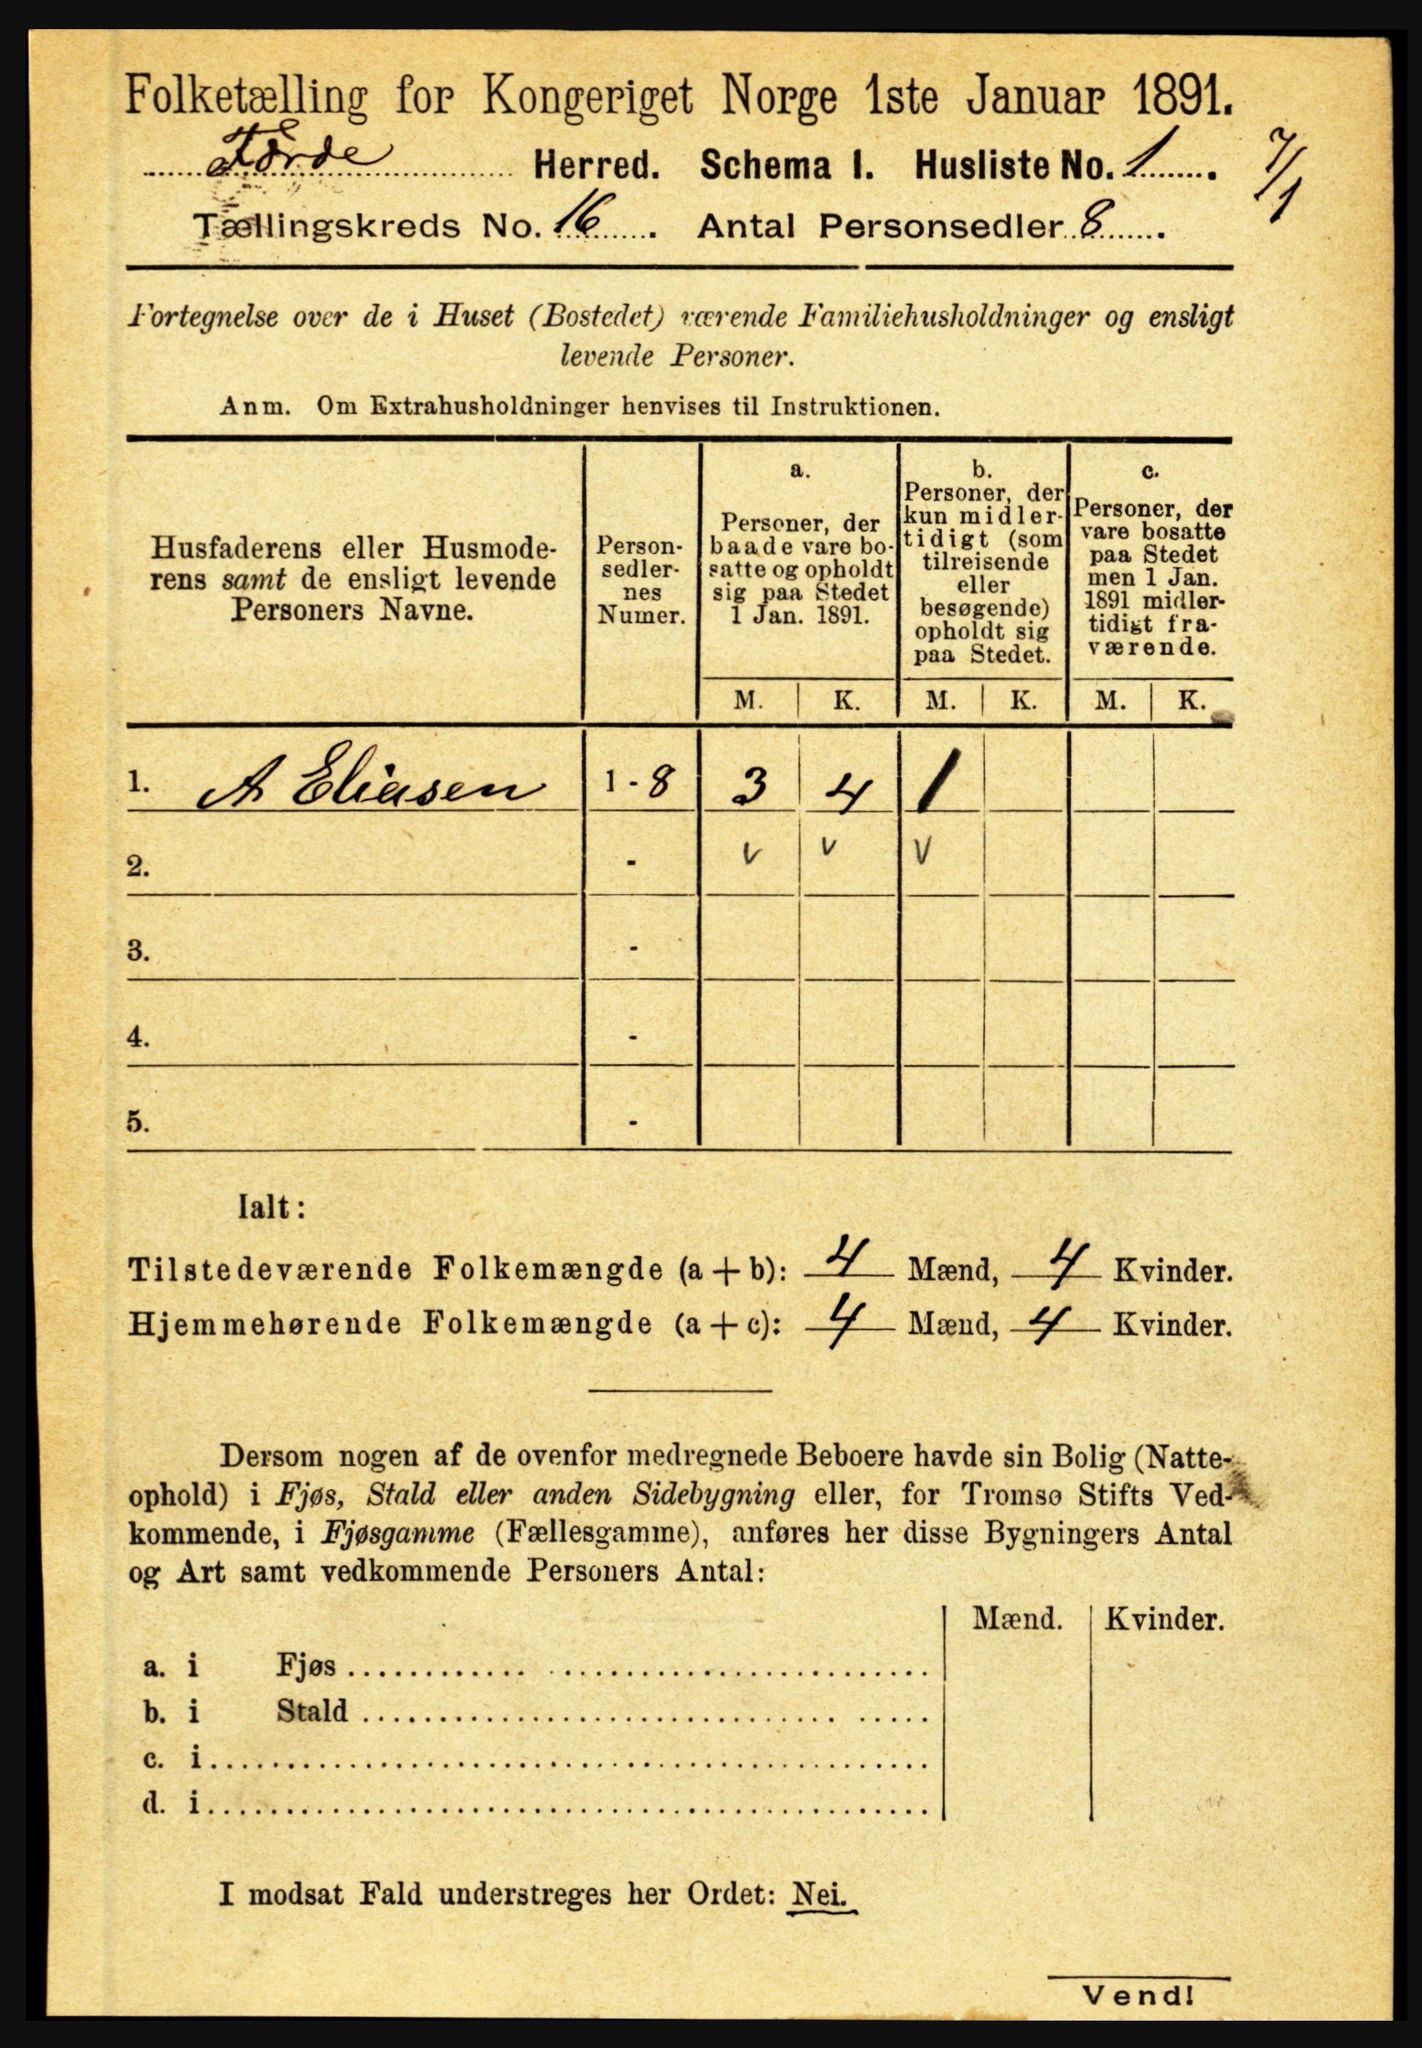 Folketælling for Kongeriget Norge 1ste Januar 1891.
Førde Herred. Schema I. Husliste No. 1. 7/1
Tællingskreds No. 16. Antal Personsedler 8.
Fortegnelse over de i Huset (Bostedet) værende Familiehusholdninger og ensligt
levende Personer.
Anm. Om Extrahusholdninger henvises til Instruktionen.
Husfaderens eller Husmode-
rens samt de ensligt levende
Personers Navne.
Person-
sedler-
nes
Numer.
a.
Personer, der
baade vare bo-
satte og opholdt
sig paa Stedet
1 Jan. 1891.
b.
Personer, der
kun midler-
tidigt (som
tilreisende
eller
besøgende)
opholdt sig
paa Stedet.
c.
Personer, der
vare bosatte
paa Stedet
men 1 Jan.
1891 midler-
tidigt fra-
værende.
M. K. M. K. M. K.
1. A Eliasen 1 - 8 3 4 1
2. - v v v
3. -
4. -
5. -
Ialt:
Tilstedeværende Folkemængde (a + b): 4 Mænd, 4 Kvinder.
Hjemmehørende Folkemængde (a + c): 4 Mænd, 4 Kvinder.
Dersom nogen af de ovenfor medregnede Beboere havde sin Bolig (Natte-
ophold) i Fjøs, Stald eller anden Sidebygning eller, for Tromsø Stifts Ved-
kommende, i Fjøsgamme (Fællesgamme), anføres her disse Bygningers Antal
og Art samt vedkommende Personers Antal:
Mænd. Kvinder.
a. i Fjøs
b. i Stald
c. i
d. i
I modsat Fald understreges her Ordet: Nei.
Vend!